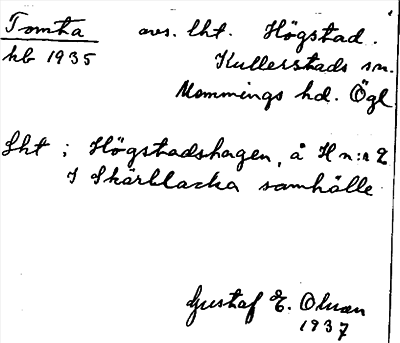 Tomta avs. lht. Högstad.
kb 1935 Kullerstads sn.
Memmings hd. Ögl
Lht ; Högstadshagen, å H n:r 2
I Skärblacka samhälle
Gustaf E. Olsson
1937